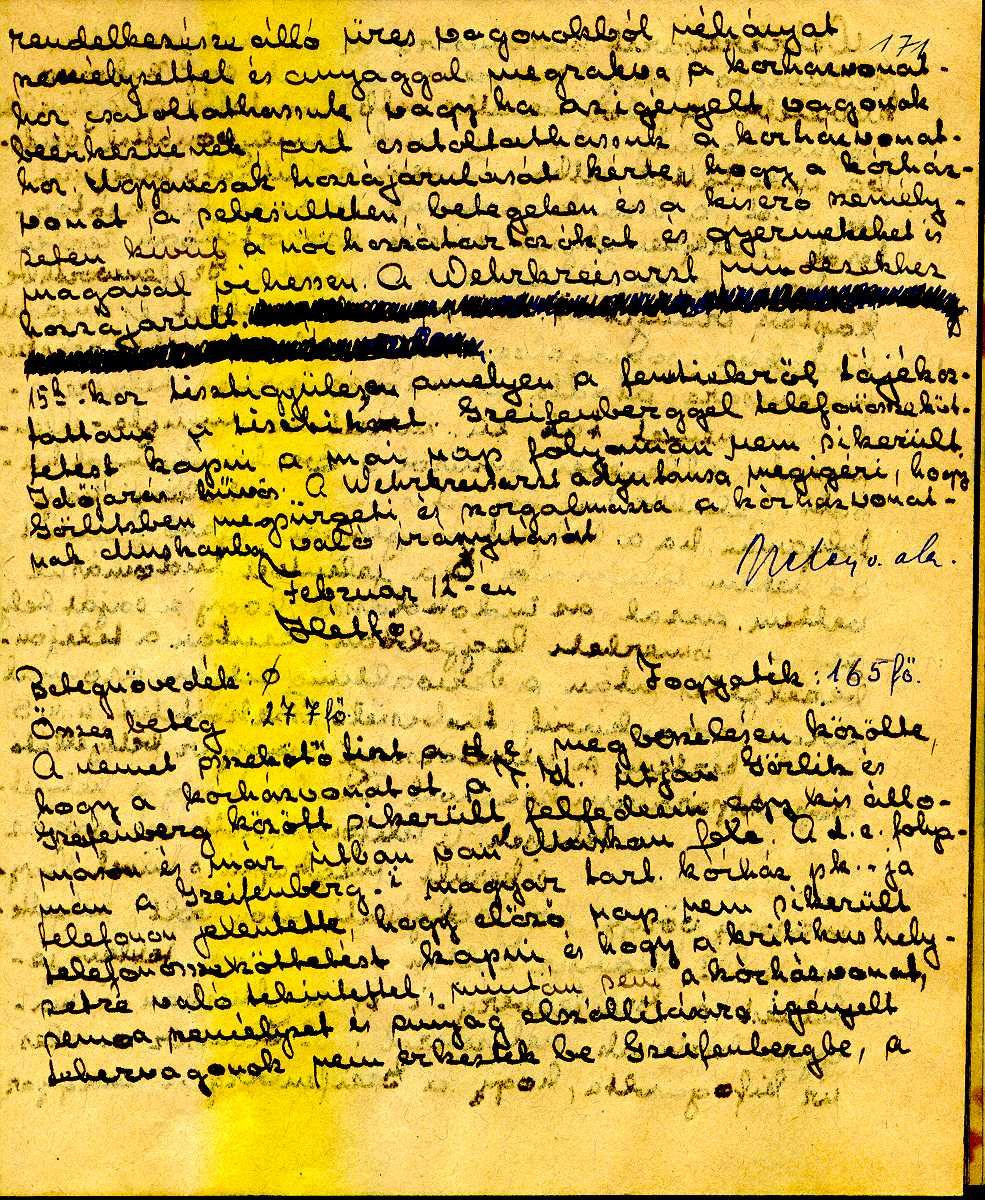 171
rendelkezésre álló üres vagonokból néhányat
személyzettel és anyaggal megrakva a kórházvonat-
hoz csatoltathassuk, vagy ha az igényelt vagonok
beérkeznének azt csatoltathassuk a kórházvonat-
hoz. Ugyancsak hozzájárulását kérte, hogy a kórház-
vonat, a sebesülteken, betegeken és a kisérő személy-
zeten kívül a női hozzátartozókat és gyermekeket is
magával vihessen. A Wehrkreisarzt mindezekhez
hozzájárult.
15h.-kor tisztigyűlésen amelyen a fentiekről tájékoz-
tattam a tisztikart. Greifenberggel telefonösszeköt-
tetést kapni a mai nap folyamán nem sikerült.
Időjárás hűvös. A Wehrkreisarzt adjutánsa megigéri, hogy
Görlitzben megsürgeti és szorgalmazza a kórházvonat-
nak Muskauba való irányítását.
Február 12-én
Hétfő
Betegnövedék: ø Fogyaték: 165 fő.
Összes beteg 277 fő
A német összekötő tiszt a d.e. megbeszélésen közölte,
hogy a kórházvonatot a T.K. útján Görlitz és
Greifenberg között sikerült felfedezni egy kis állo-
máson és már útban van Muskau felé. A d.e. folya-
mán a Greifenberg.-i magyar tart. kórház pk.-ja
telefonon jelentette, hogy előző nap nem sikerült
telefonösszeköttetést kapni és hogy a kritikus hely-
zetre való tekintettel, miután sem a kórházvonat,
sem a személyzet és anyag elszállítására igényelt
tehervagonok nem érkeztek be Greifenbergbe, a